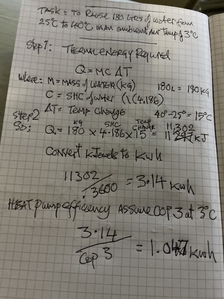 TASK = to Raise 180 Litres of water from
25°C to 40°C in an ambient Air Temp of 3°C
Step 1: THERMAL ENERGY REQUIRED
Q = MC ΔT
where: M = MASS of WATER (KG) 180L = 180 KG
C = SHC of water (4.186)
ΔT = Temp Change 40°-25° = 15°C
Step 2 KG SHC TEMP CHANGE 11302
So: Q = 180 x 4.186 x 15 = KJ
Convert KJ to kwh
11302
/3600 = 3.14 kwh
HEAT Pump efficiency ASSUME COP 3 at 3°C
3.14
/COP 3 = 1.047 kwh